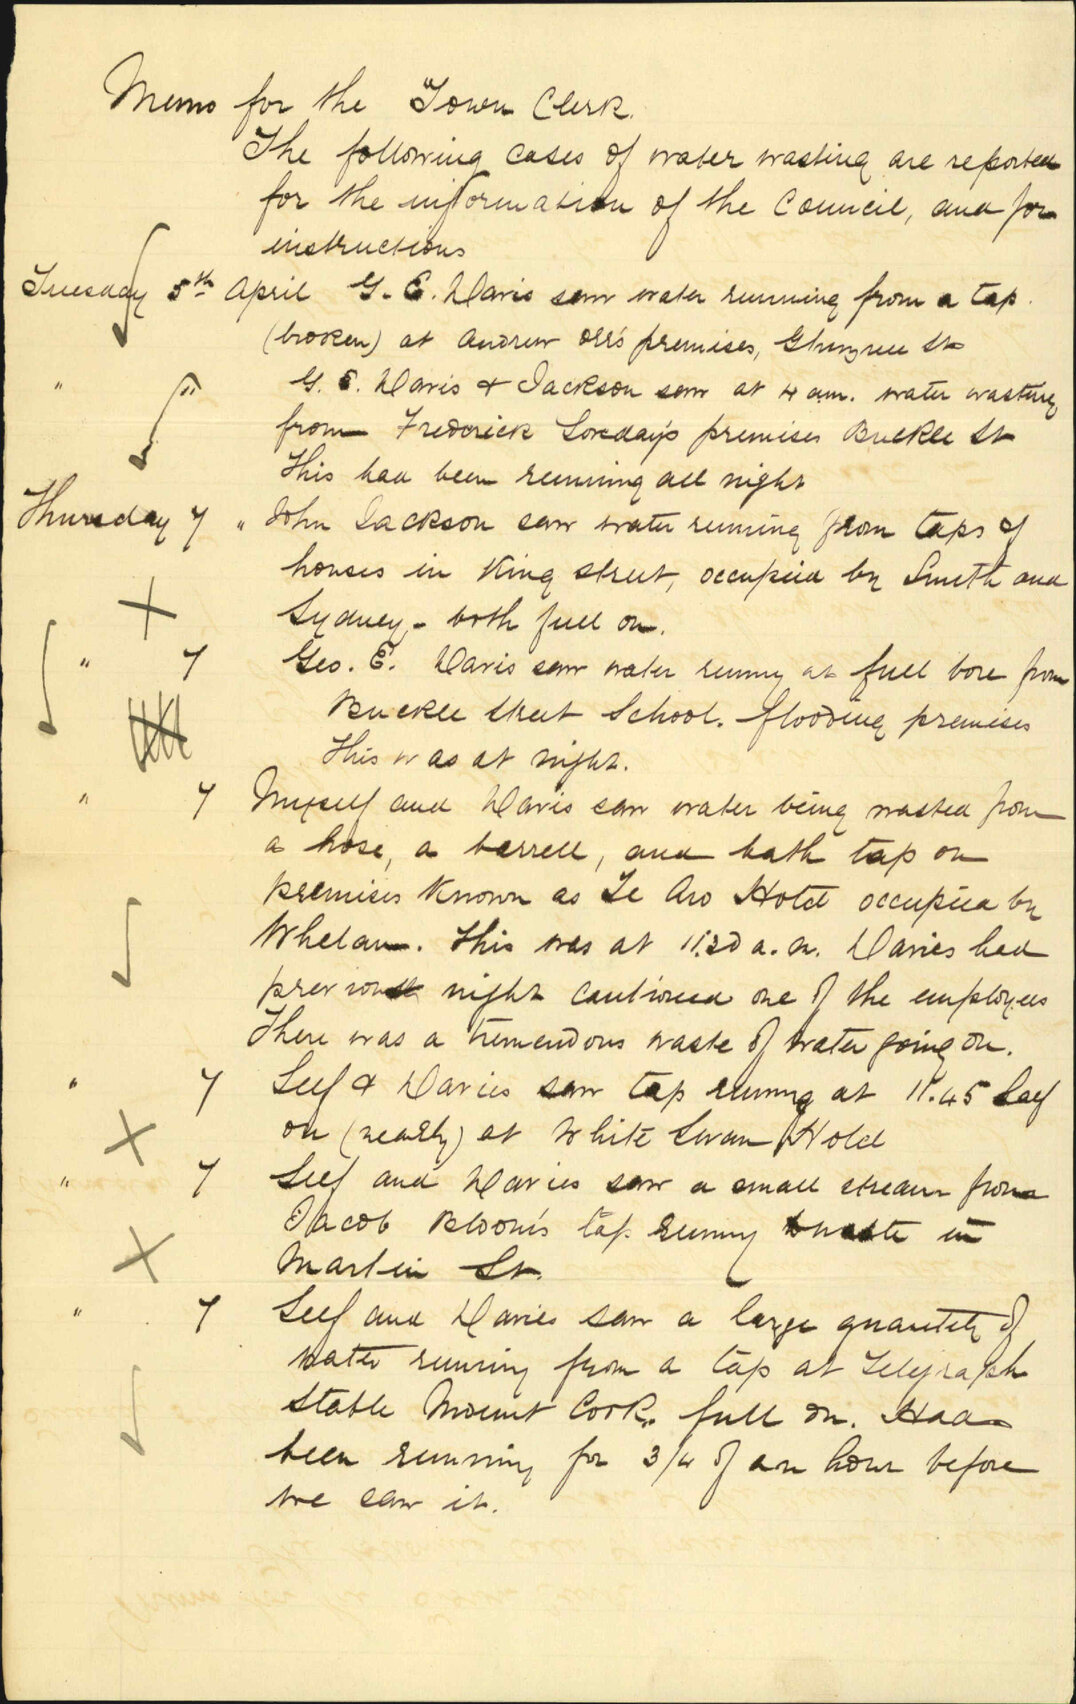 Memo for the Town Clerk.
The following cases of water wasting are reported
for the information of the Council, and for
instructions
Tuesday 5th April G. E. Davis saw water running from a tap
(broken) at Andrew Orr's premises, Ghuznee St
" " G. E. Davis & Jackson saw at 4 am. water wasting
from Frederick Loveday's premises Buckle St
This had been running all night
Thursday 7 " John Jackson saw water running from taps of
houses in King street, occupied by Smith and
Sydney, - both full on.
" 7 Geo. E. Davis saw water runng at full bore from
Buckle Street School. flooding premises
This was at night.
" 7 Myself and Davis saw water being wasted from
a hose, a barrell, and bath tap on
premises known as Te Aro Hotel occupied by
Whelan. This was at 11.30 a.m. Davies had
previous night cautioned one of the employees
There was a tremendous waste of water going on.
" 7 Self & Davies saw tap running at 11.45 half
on (nearly) at White Swan Hotel
" 7 Self and Davies saw a small stream from
Jacob Bloom's tap running to waste in
Martin St.
" 7 Self and Davies saw a large quantity of
water running from a tap at Telegraph
Stable Mount Cook. full on. Had
been running for 3/4 of an hour before
we saw it.